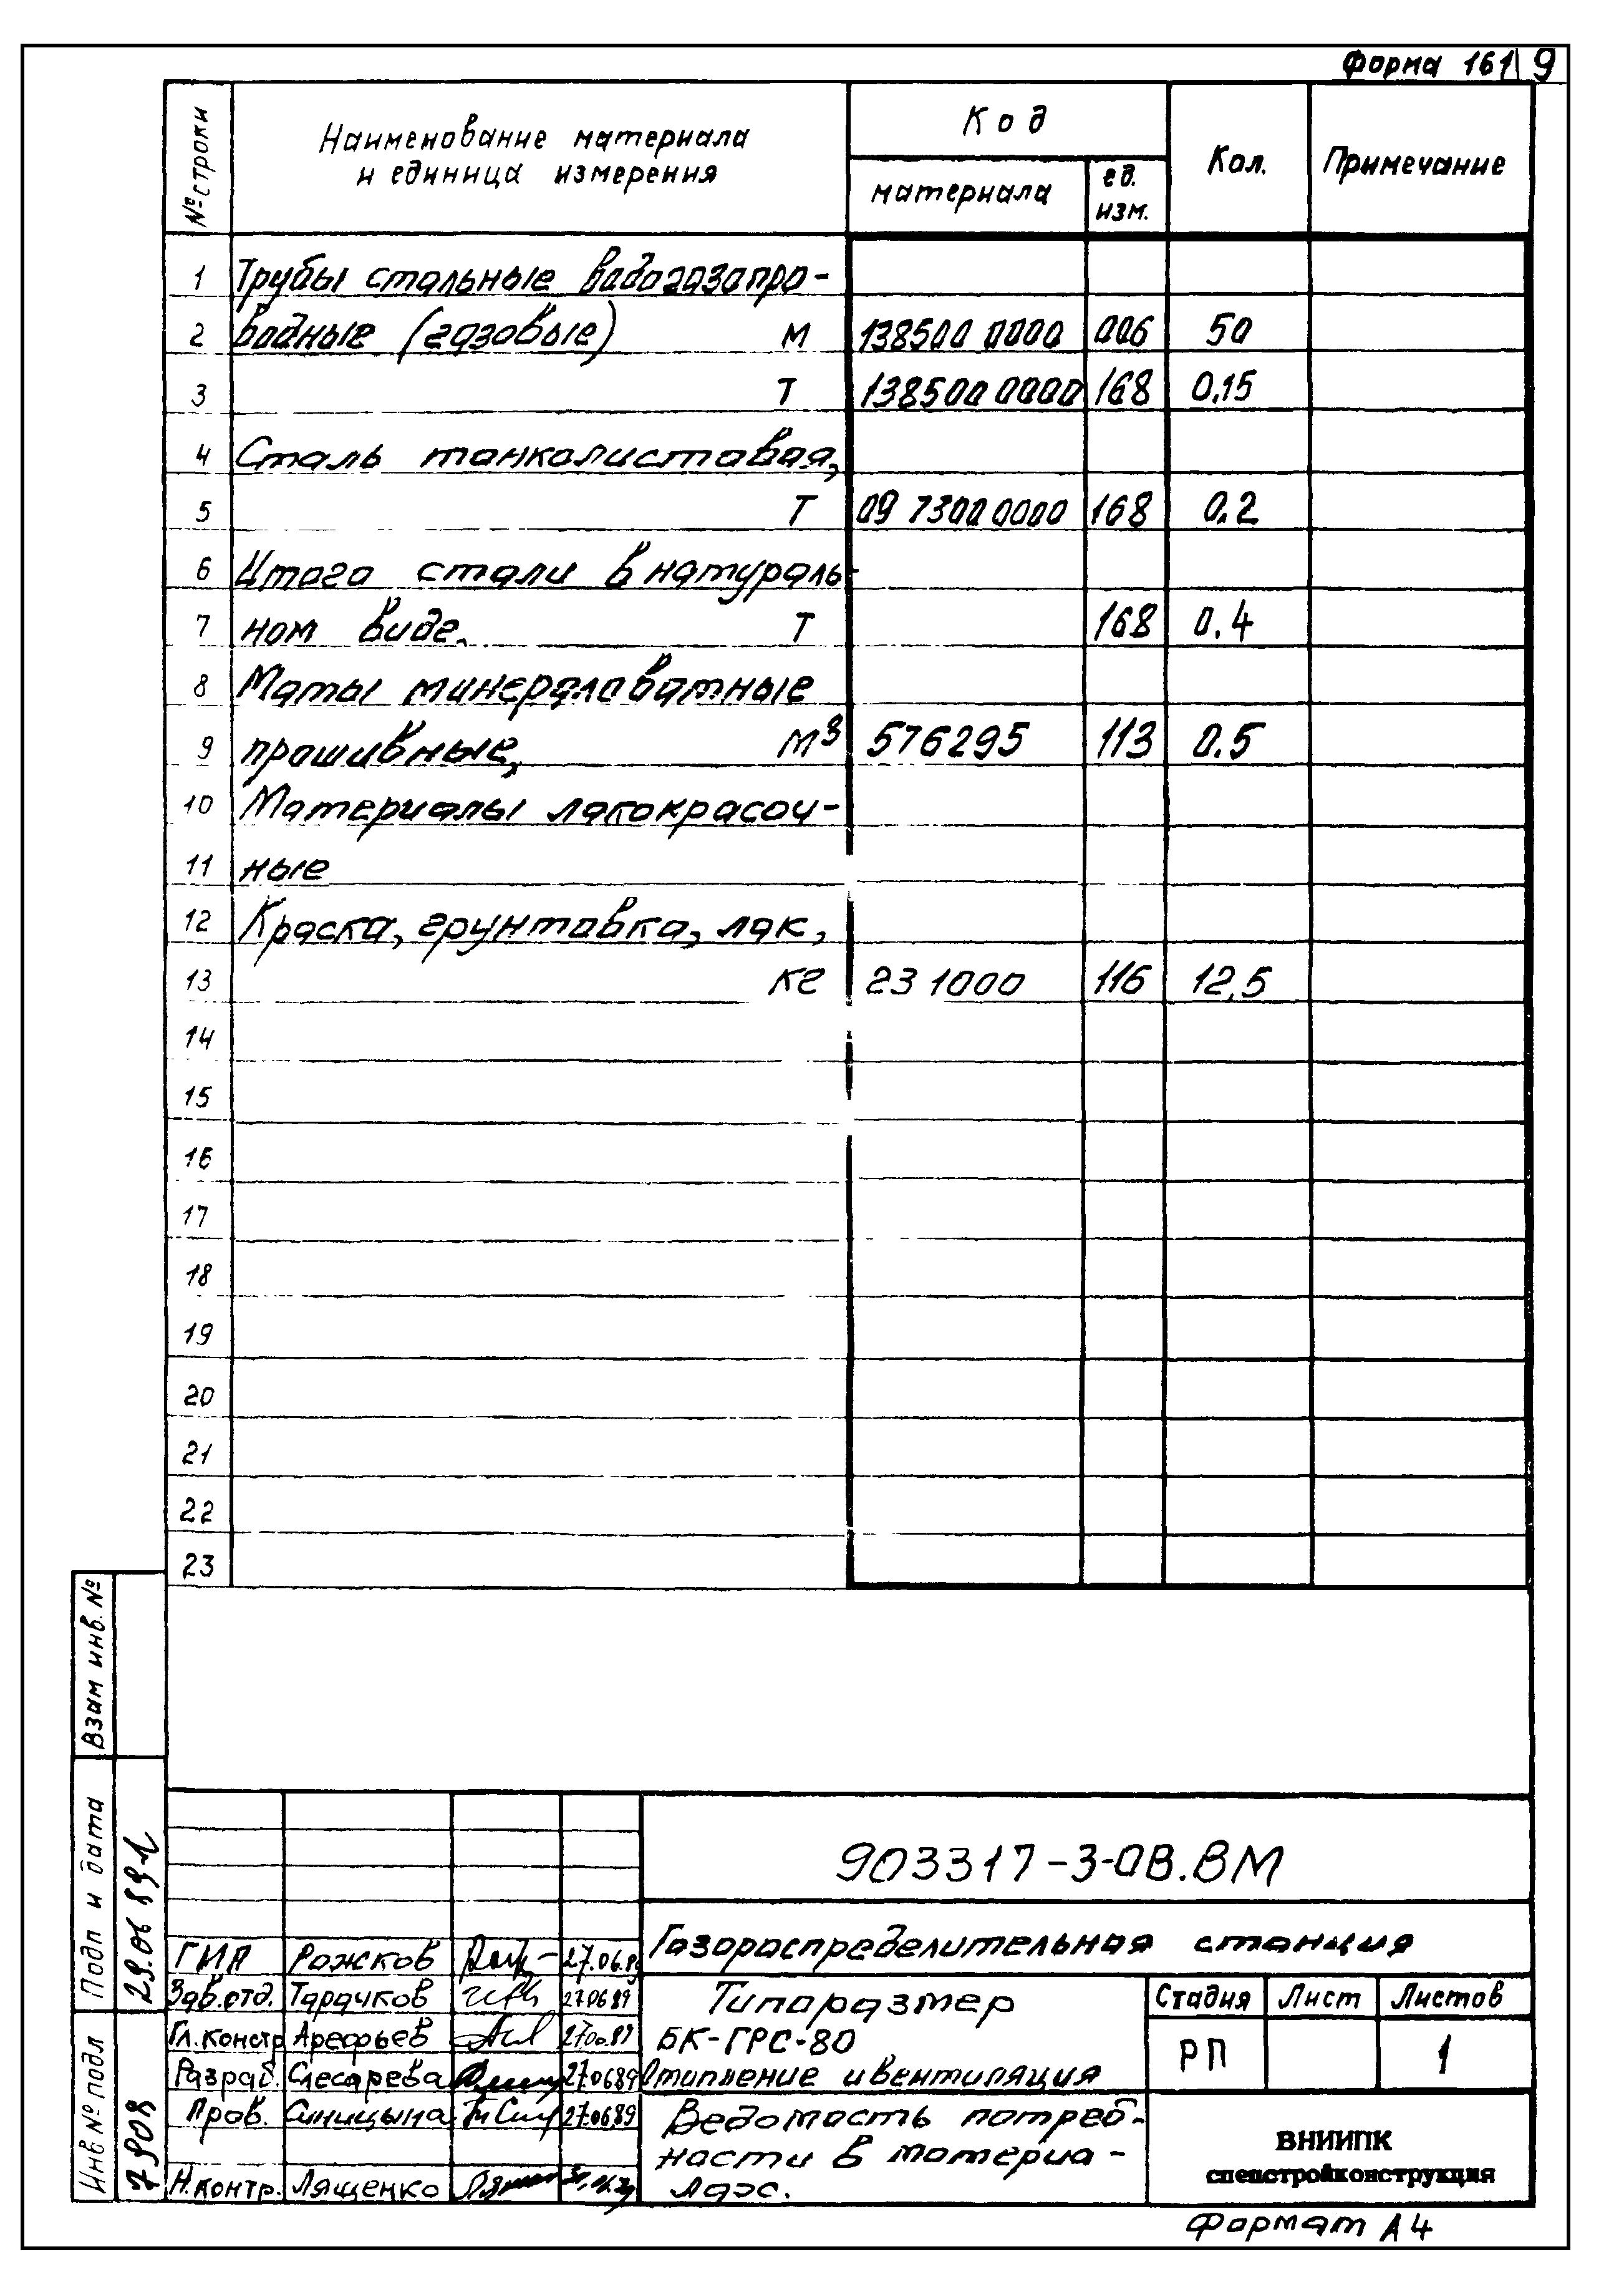 Форма 161 9
№ строки
Наименование материала
и единица измерения
Код
материала
ед.
изм.
Кол.
Примечание
1 Трубы стальные водогазопро-
2 водные (газовые) м 138500 0000 006 50
3 т 138500 0000 168 0,15
4 Сталь тонколистовая,
5 т 09 7300 0000 168 0,2
6 Итого стали в натураль-
7 ном виде. т 168 0,4
8 Маты минераловатные
9 прошивные, м³ 576295 113 0,5
10 Материалы лакокрасоч-
11 ные
12 Краска, грунтовка, лак,
13 кг 23 1000 116 12,5
14
15
16
17
18
19
20
21
22
23
Взам инв. №
Подп и дата
29.06 89
Инв № подл
7908
903317-3-ОВ.ВМ
Газораспределительная станция
ГИП Рожков 27.06.89
Зав.отд. Тарачков 27.06.89
Гл.констр Арефьев
Разраб. Слесарева 27.06.89
Пров. Синицына 27.06.89
Н.контр. Лященко
Типоразмер
БК-ГРС-80
Отопление и вентиляция
Стадия Лист Листов
РП 1
Ведомость потреб-
ности в материа-
лах.
ВНИИПК
спецстройконструкция
Формат А4